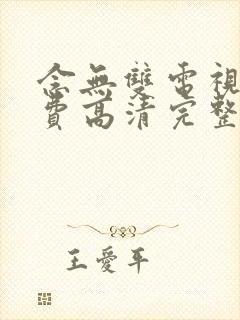 念無雙電視
費高清完整
王愛平